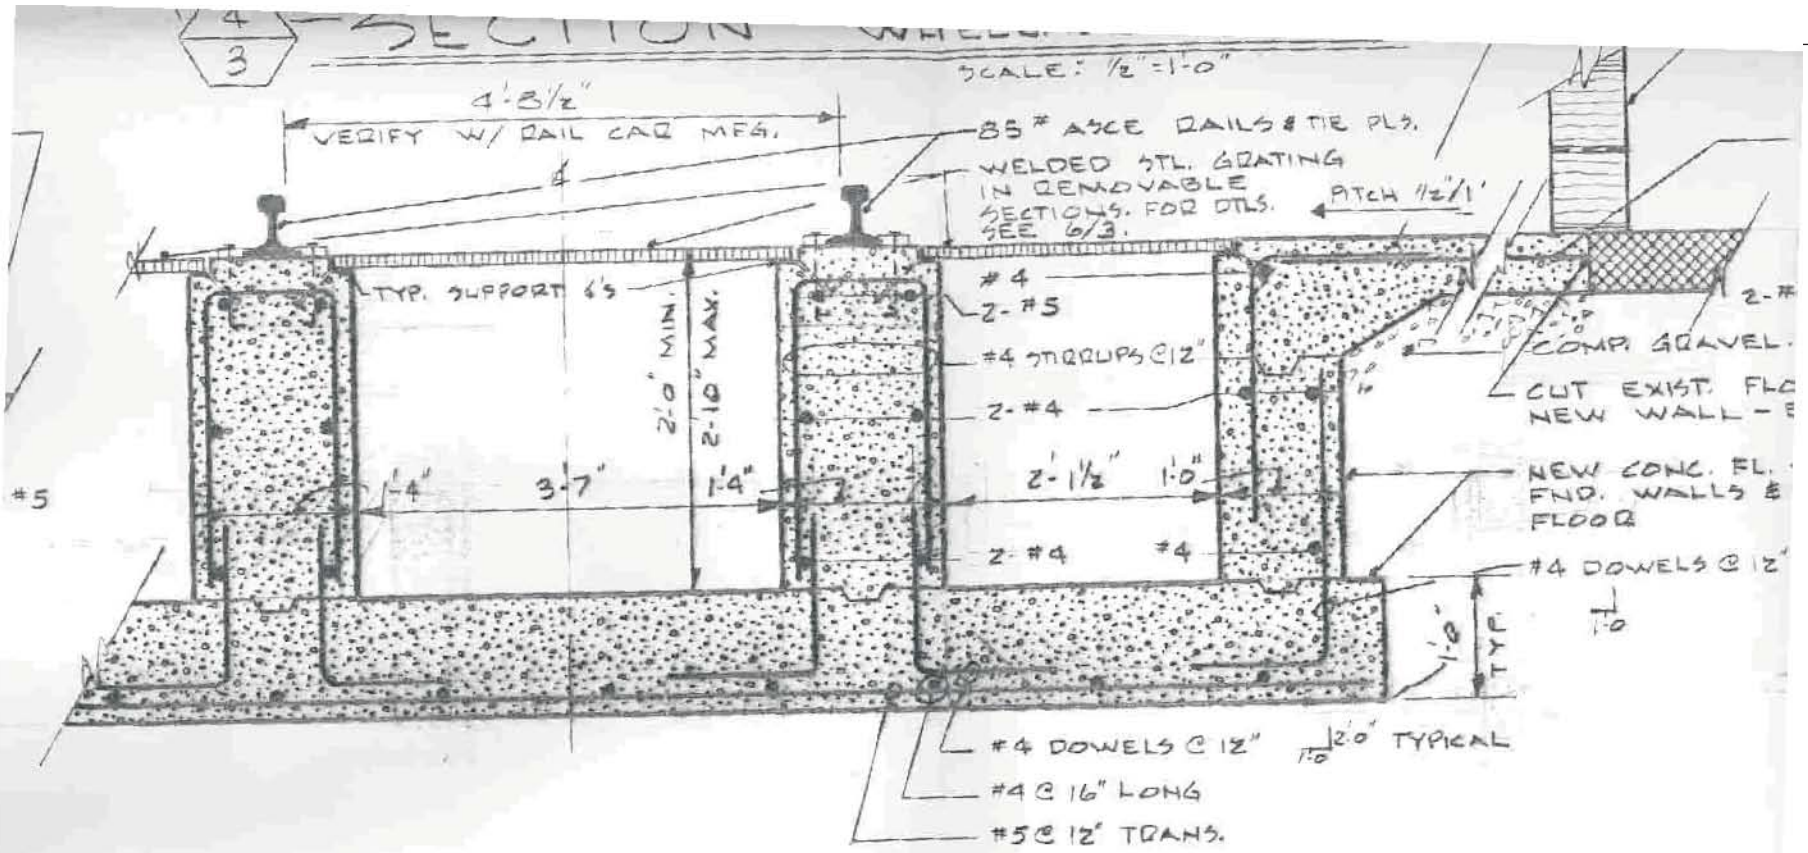 4
3
SECTION
SCALE: 1/2"=1'-0"
4'-8 1/2"
VERIFY W/ RAIL CAR MFG.
85# ASCE RAILS & TIE PLS.
WELDED STL. GRATING
IN REMOVABLE
SECTIONS. FOR DTLS.
SEE 6/3.
PITCH 1/2"/1'
TYP. SUPPORT L'S
#4
2-#5
2'-0" MIN.
2'-10" MAX.
#4 STIRRUPS @ 12"
2-#4
2-#
COMP. GRAVEL.
CUT EXIST.
NEW WALL -
#5
1'-4"
3'-7"
1'-4"
2'-1 1/2"
1'-0"
NEW CONC. FL.
FND. WALLS &
FLOOR
2-#4
#4
#4 DOWELS @ 12"
1'-0
1'-0"
TYP.
#4 DOWELS @ 12"
1'-0
2'-0" TYPICAL
#4 @ 16" LONG
#5 @ 12" TRANS.